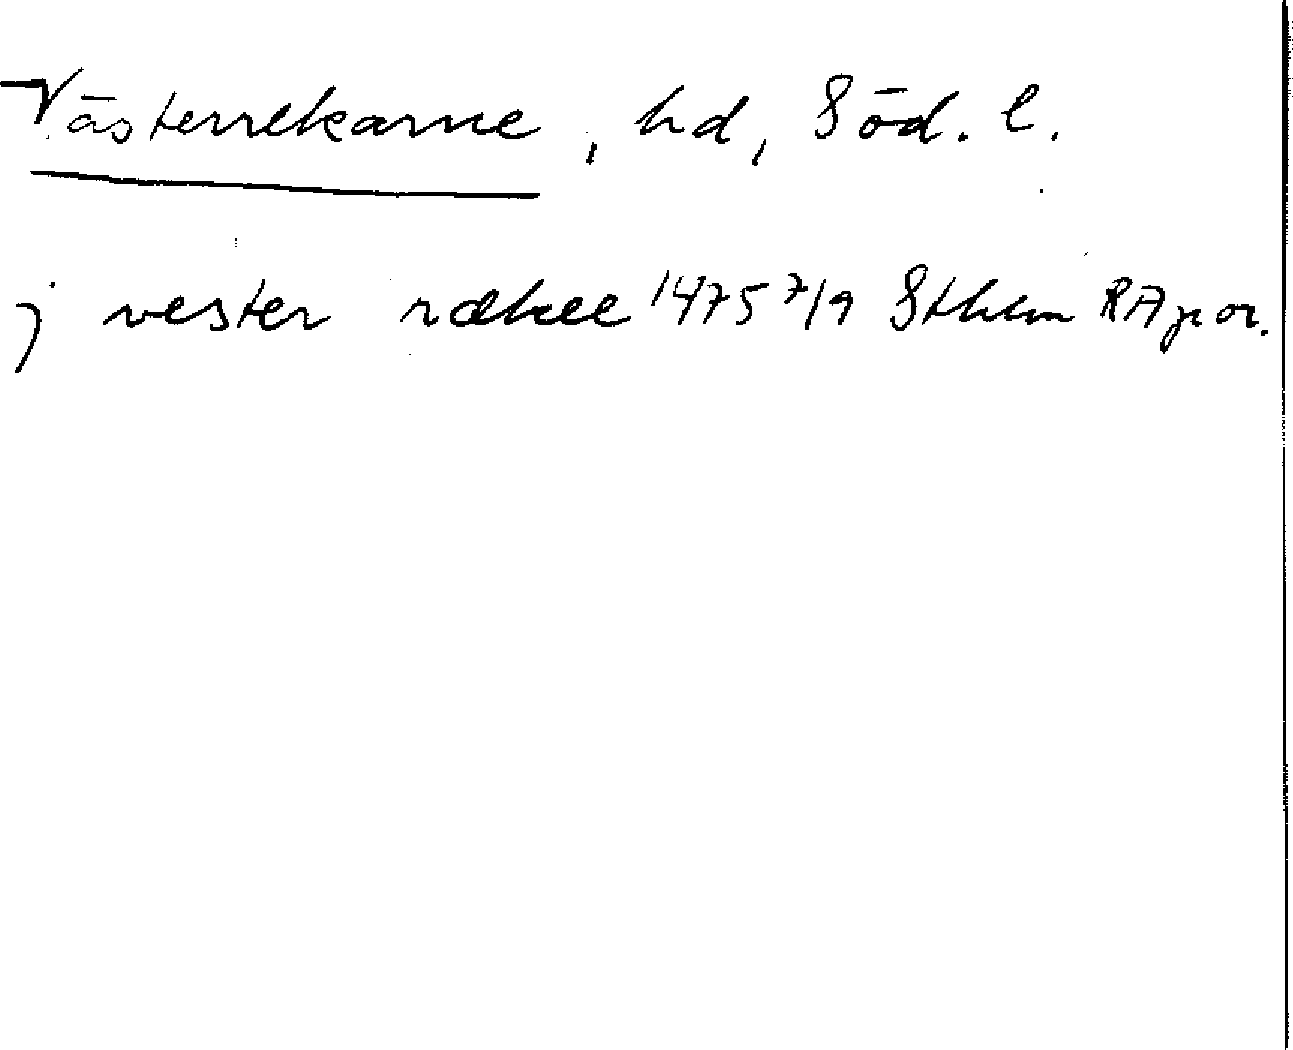 Västerrekarne, hd, Söd. l.
j vester rækee 1475 7/9 Sthlm RAp or.